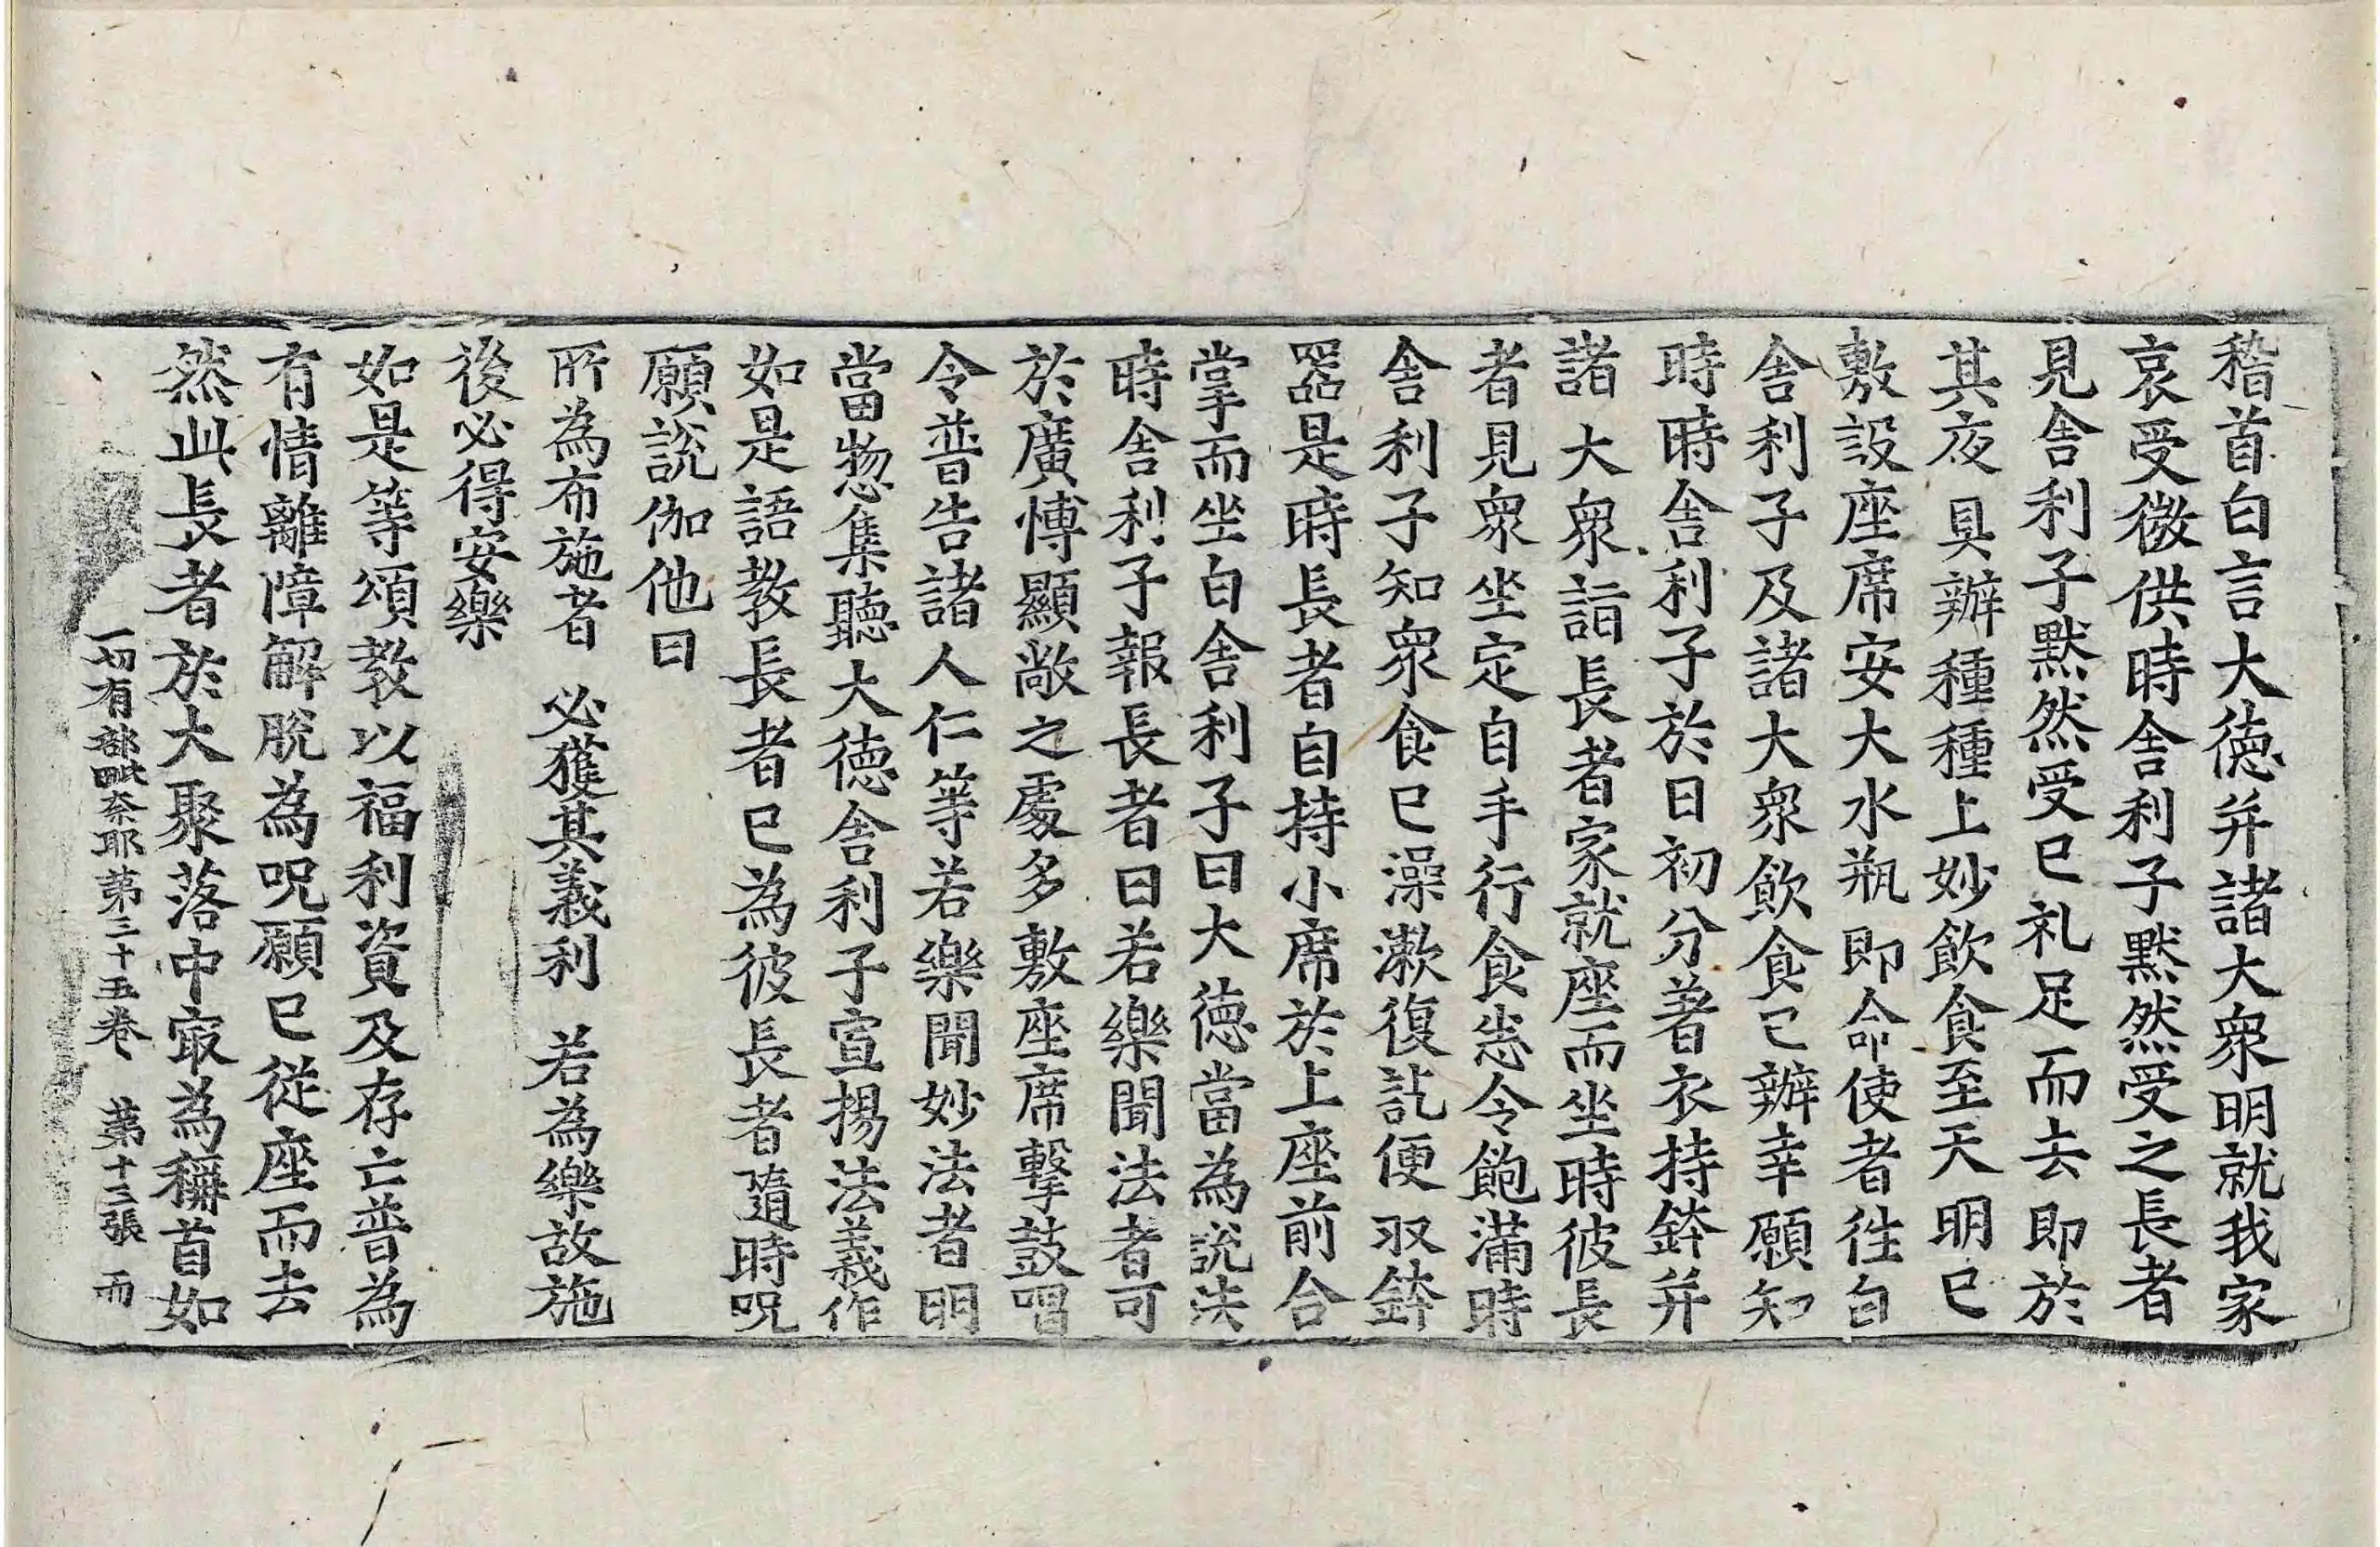 稽首白言大德并諸大衆明就我家
哀受微供時舍利子默然受之長者
見舍利子默然受已礼足而去即於
其夜具辦種種上妙飲食至天明已
敷設座席安大水瓶即命使者往白
舍利子及諸大衆飲食已辦幸願知
時時舍利子於日初分著衣持鉢并
諸大衆詣長者家就座而坐時彼長
者見衆坐定自手行食悉令飽滿時
舍利子知衆食已澡漱復訖便収鉢
器是時長者自持小席於上座前合
掌而坐白舍利子曰大德當為說法
時舍利子報長者曰若樂聞法者可
於廣博顯敞之處多敷座席擊鼓唱
令普告諸人仁等若樂聞妙法者明
當惣集聽大德舍利子宣揚法義作
如是語教長者已為彼長者隨時呪
願說伽他曰
所為布施者　必獲其義利　若為樂故施
後必得安樂
如是等頌教以福利資及存亡普為
有情離障解脫為呪願已從座而去
然此長者於大聚落中冣為稱首如
一切有部毗奈耶第三十五卷　第十三張　而